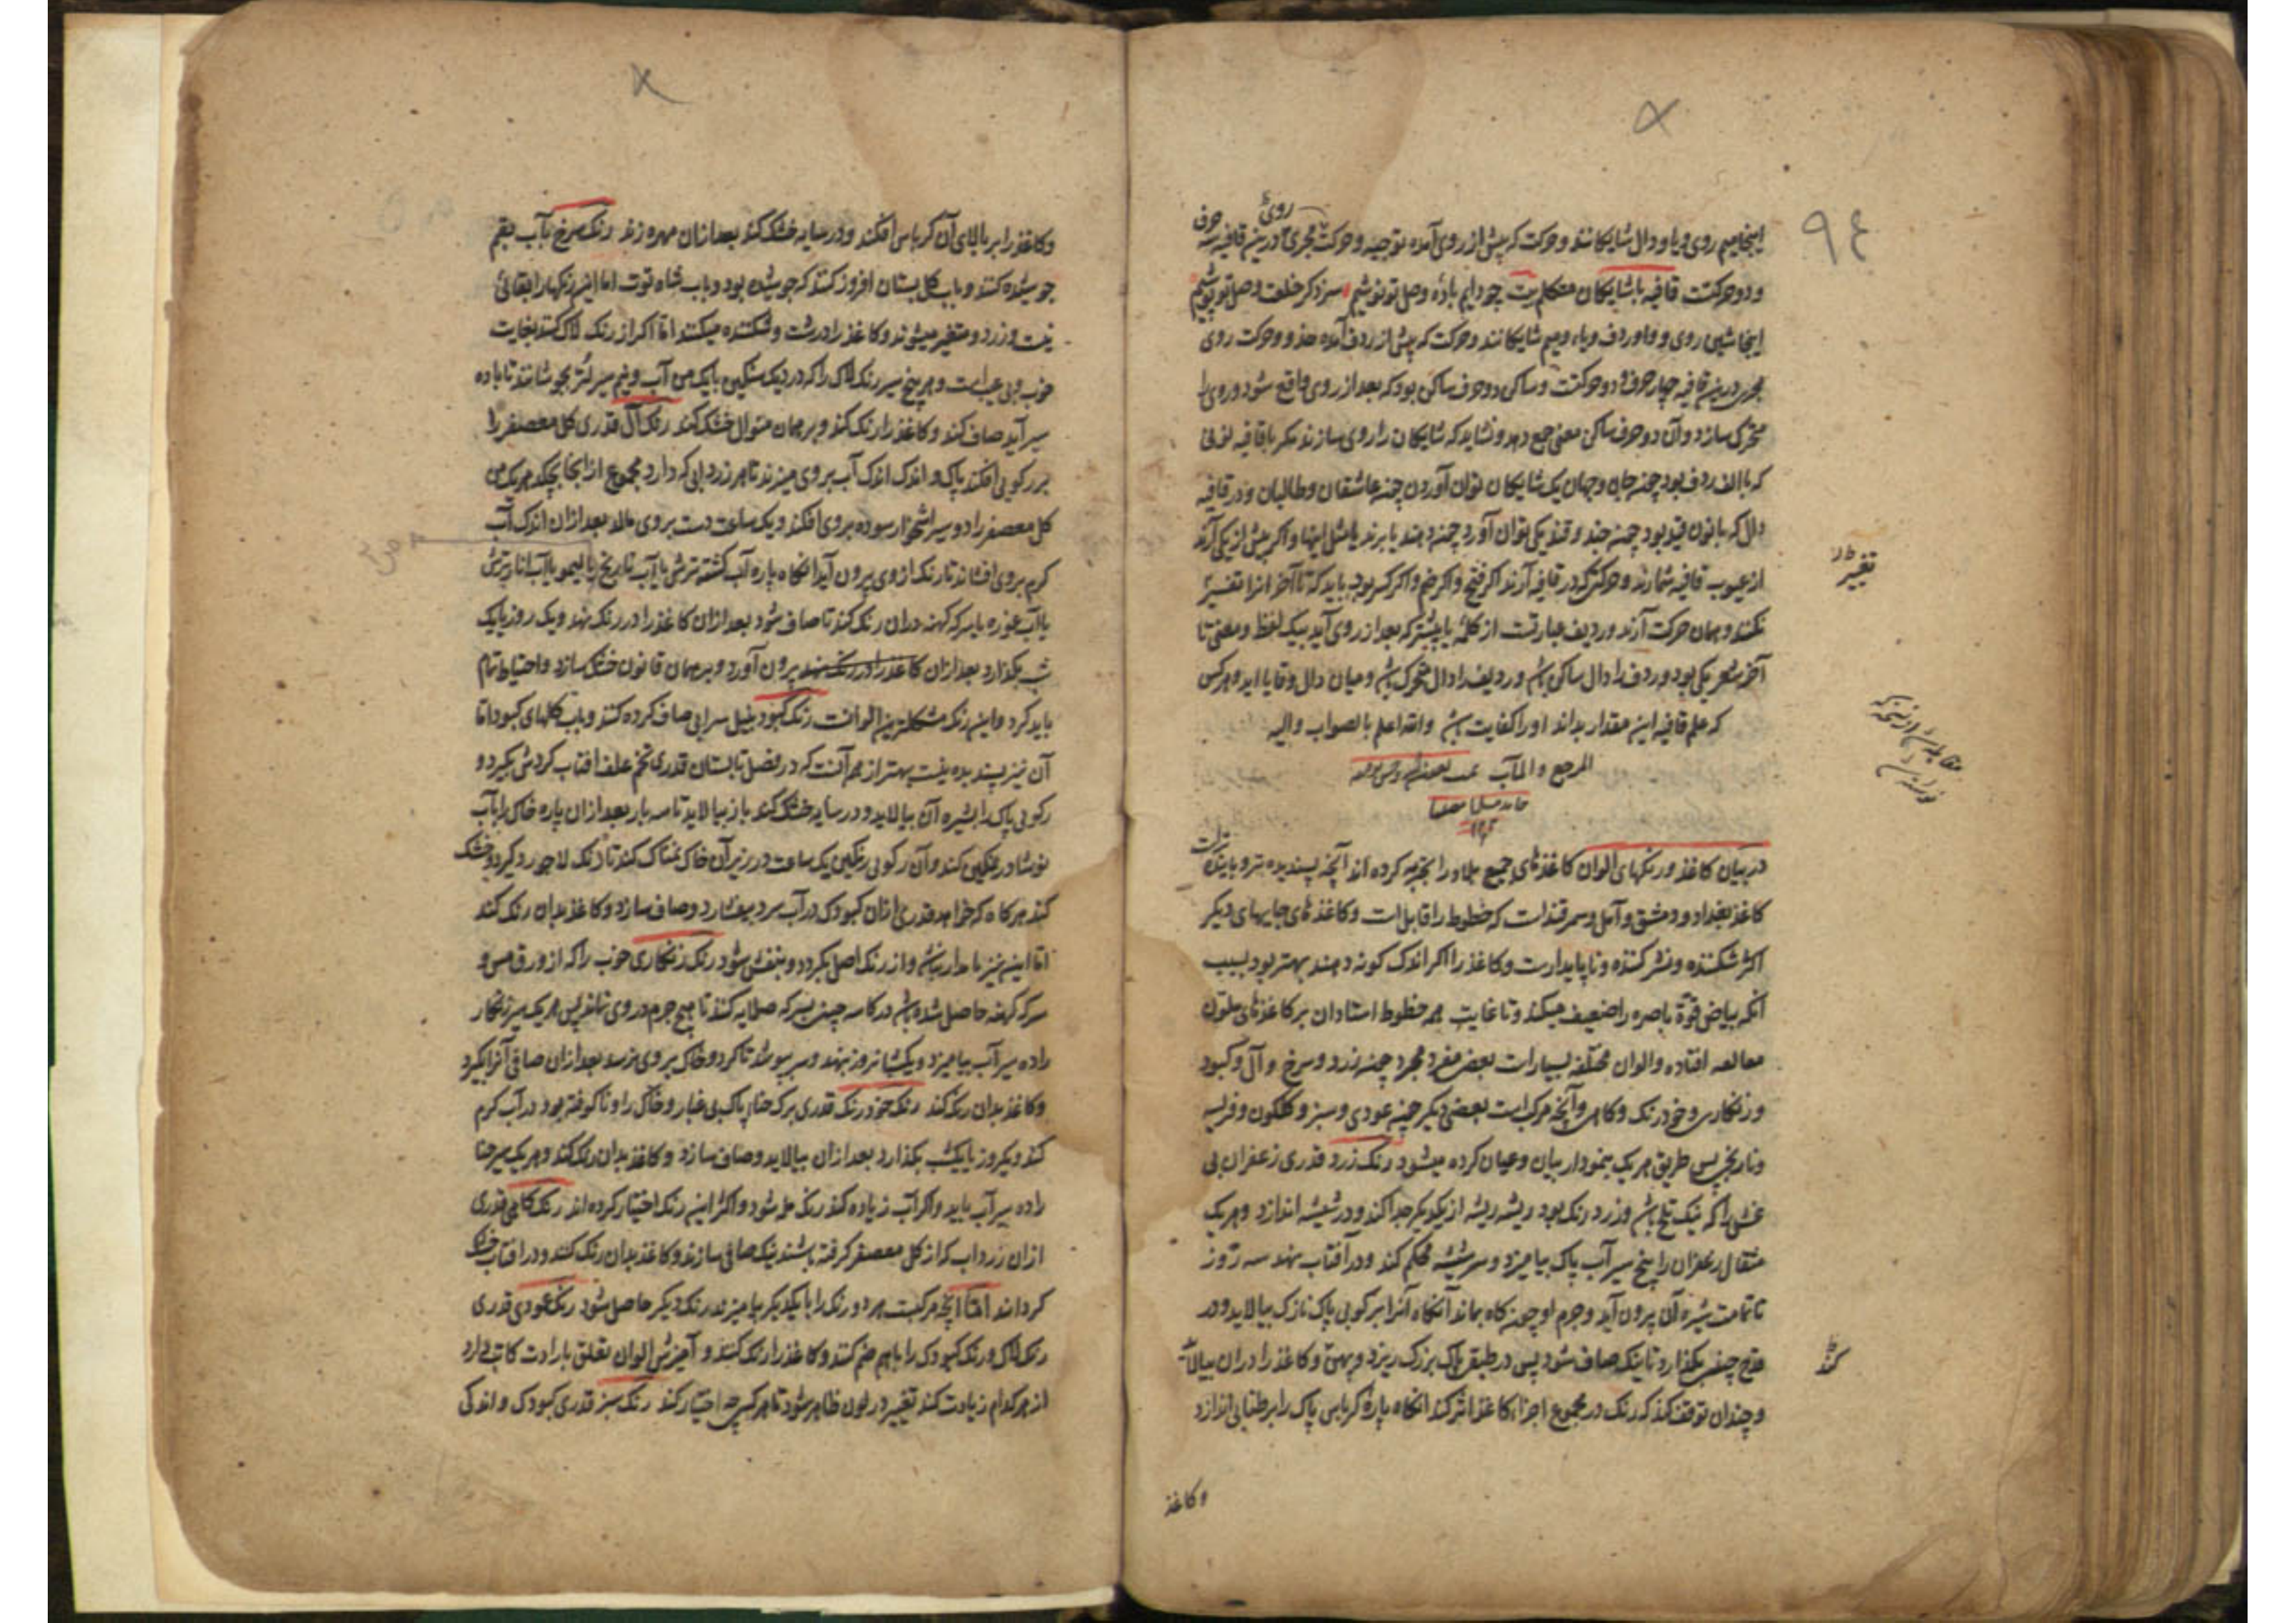 ۹۴
روی حرف
اینجا میم روی و یا و دال شایکانند و حرکت که پیش از روی آمده توجیه و حرکت مجری در ین قافیه سه
و دو حرکتت قافیه با شایکان متکلم بیت چو دایم باده وصل تو نوشیم سزد کر خلعت وصل تو پوشیم
اینجا شین روی و واو ردف و یاء و میم شایکانند و حرکت که پیش از ردف آمده حذو و حرکت روی
مجری درین قافیه چهار حرف و دو حرکتت و ساکن دو حرف ساکن بود که بعد از روی واقع شود و روی را
متحرک سازد و آن دو حرف ساکن معنی جمع دهد و نشاید که شایکان را روی سازند مکر با قافیه نونی
که با الف ردف بود چون جان و جهان یک شایکان توان آوردن چون عاشقان و طالبان و در قافیه
دال که با نون قید بود چون چند و قند یکی توان آورد چون دهند یا برند یا مثل اینها و اکر بیش از یکی آرند
از عیوب قافیه شمارند و حرکتی که در قافیه آرند اکر فتح و اکر ضم و اکر کسر بود باید که تا آخر انرا تغییر
نکنند و همان حرکت آرند و ردیف عبارتست از کلمه یا بیشتر که بعد از روی آید بیک لفظ و معنی تا
آخر شعر یکی بود و ردف را دال ساکن باشد و ردیف را دال متحرک باشد و میان دال و قایا اید و هر کس
که علم قافیه این مقدار بداند او را کفایت باشد والله اعلم بالصواب والیه
المرجع والمآب
حامدا مصلیا
در بیان کاغذ و رنکهای الوان کاغذهای جمیع بلاد را تجربه کرده اند آنچه پسندیده تر و پاینده تراست
کاغذ بغداد و دمشق و آمل و سمرقندات که خطوط را قابل است و کاغذهای جایهای دیکر
اکثر شکننده و نشر کننده و ناپایدارست و کاغذ را اکر اندک کونه دهند بهتر بود بسبب
آنکه بیاض قوّة باصره را ضعیف میکند و تا غایت همه خطوط استادان بر کاغذهای ملوّن
معالعه افتاده و الوان مختلفه بسیارات بعضی مفرد مجرد چون زرد و سرخ و آل و کبود
و زنکاری و خود رنک و کاهی و آنچه مرکب است بعضی دیکر چون عودی و سبز و کلکون و فریسه
و نارنجی پس طریق هر یک بنمودار بیان و عیان کرده میشود رنک زرد قدری زعفران بی
غش را که نیک تلخ باشد و زرد رنک بود ریشه ریشه از یکدیکر جدا کند و در شیشه اندازد و هر یک
مثقال زعفران را پنج سیر آب پاک بیامیزد و سر شیشه محکم کند و در آفتاب بهند سه روز
تا تمامت شیره آن بیرون آید و جرم او چون کاه بماند آنکاه آنرا بر کویی پاک نازک بیالاید و در
قدح چینی بکذارد تا نیک صاف شود پس در طبقی پاک بزرک ریزد و پهن و کاغذ را دران بیالا
و چندان توقف کند که رنک در مجموع اجزاء کاغذ اثر کند انکاه پارهٔ کرباس پاک را بر طنابی اندازد
وکاغذ
تغییر
کند
و کاغذ را بر بالای آن کرباس افکند و در سایه خشک کند بعد ازان مهره زند رنک سرخ بآب بقم
جوشیده کنند و بآب کل بستان افروز کنند که جوشیده بود و بآب شاه توت اما این رنکها را بقائی
نیت و زرد و متغیر میشوند و کاغذ را درشت و شکننده میکنند امّا اکر از رنک لاک کنند بغایت
خوب و بی عیب است و هر پنج سیر رنک لاک را که در دیک سنکین با یک من آب و نیم سیر لتر بجوشانند تا باده
سیر آید صاف کند و کاغذ را رنک کند و بر همان منوال خشک کند رنک آل قدری کل معصفر را
بر رکویی افکند پاک و اندک اندک آب بر وی میزند تا هر زردابی که دارد مجموع از انجا بچکد هر یک من
کل معصفر را دو سیر اشخار سوده بروی افکند و یک ساعت دست بروی مالد بعد ازان اندک آب
کرم بروی افشاند تا رنک ازوی بیرون آید انکاه پاره آب کشته ترشی یا آب نارنج یا لیمو یا آب انار ترش
یا آب غوره یا سرکه کهنه دران رنک کند تا صاف شود بعد ازان کاغذ را در رنک نهد و یک روز یا یک
شب بکذارد بعد ازان کاغذ را در رنک نهد بیرون آورد و بر همان قانون خشک سازد و احتیاط تمام
باید کرد و این رنک مشکلترین الوانست رنک کبود بنیل سرابی صاف کرده کنند و بآب کلهای کبود امّا
آن نیز پسندیده نیست بهتر از همه آنست که در فصل تابستان قدری تخم علف افتاب کردش بکیرد و
رکویی پاک را بشیره آن بیالاید و در سایه خشک کند باز بیالاید تا سه بار بعد ازان پاره خاک را بآب
نوشادر نمکین کند و آن رکویی رنکین یک ساعت در زیر آن خاک نمناک کند تا رنک لاجورد کیرد و خشک
کند هر کاه که خواهد قدری ازان کبودک در آب سرد بیفشارد و صاف سازد و کاغذ بدان رنک کند
امّا این نیز نامدار نباشد و از رنک اصل بکردد و بنفش شود رنک زنکاری خوب را که از ورق مس و
سرکه کهنه حاصل شده باشد در کاسه چینی بسرکه صلایه کند تا هیچ جرم در وی نماند پس هر یک سیر زنکار
را ده سیر آب بیامیزد و یکشبانروز بنهد و سر بپوشد تا کرد و خاک بروی نرسد بعد ازان صافی آنرا بکیرد
و کاغذ بدان رنک کند رنک خود رنک قدری برک حنا پاک بی غبار و خاک را و ناکوفته بود در آب کرم
کند و یکروز یا یکشب بکذارد بعد ازان بیالاید و صاف سازد و کاغذ بدان رنک کند و هر یک سیر حنا
را ده سیر آب باید و اکر آب زیاده کند رنک مله شود و اکثر این رنک اختیار کرده اند رنک کاهی قدری
ازان زرداب که از کل معصفر کرفته باشند نیک صافی سازند و کاغذ بدان رنک کنند و در افتاب خشک
کردانند امّا آنچه مرکبست هر دو رنک را با یکدیکر بیامیزند رنک دیکر حاصل شود رنک عودی قدری
رنک لاک و رنک کبودک را باهم ضم کنند و کاغذ را رنک کنند و آمیزش الوان تعلق بارادت کاتب دارد
از هر کدام زیادت کند تغییر در لون ظاهر شود تا هر کس چه اختیار کند رنک سبز قدری کبودک و اندکی